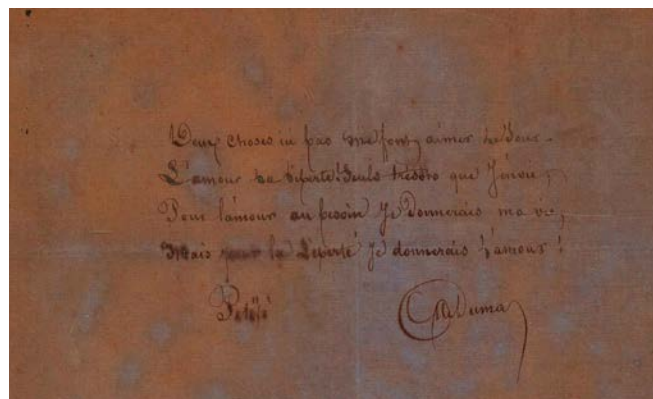 Deux choses ici bas me font aimer le Jour -
L'amour La Liberté! Seuls trésors que J'envie,
Pour l'amour au besoin Je Donnerais ma vie,
Mais pour la Liberté Je donnerais L'amour!
Petöfi Al Dumas